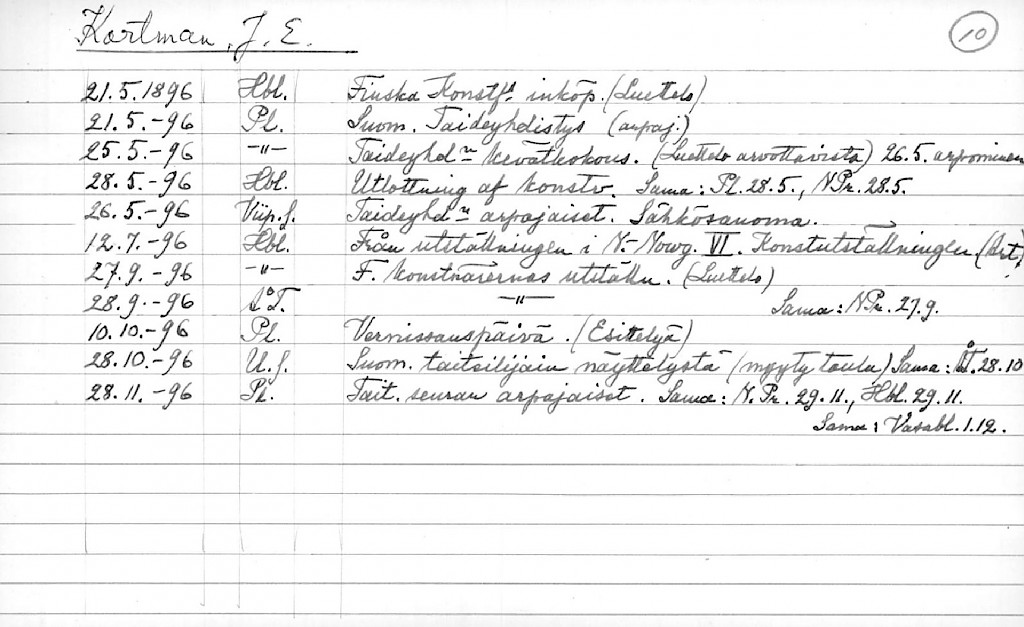 Kortman, J. E. 10
21.5.1896 Hbl. Finska Konstf:s inköp. (Luettelo)
21.5.-96 Pl. Suom. Taideyhdistys (arpaj.)
25.5.-96 -"- Taideyhd:n kevätkokous. (Luettelo arvottavista) 26.5. arpominen
28.5.-96 Hbl. Utlottning af konstv. Sama: Pl. 28.5., N.Pr. 28.5.
26.5.-96 Viip.s. Taideyhd:n arpajaiset. Sähkösanoma.
12.7.-96 Hbl. Från utställningen i N.-Nowg. VI. Konstutställningen (Art.)
27.9.-96 -"- F. konstnärernas utställn. (Luettelo)
28.9.-96 Å.T. -"- Sama: N.Pr. 27.9.
10.10.-96 Pl. Vernissauspäivä. (Esittelyä)
28.10.-96 U.S. Suom. taiteilijain näyttelystä (myyty taulu) Sama: Å.T. 28.10
28.11.-96 Pl. Tait. seuran arpajaiset. Sama: N.Pr. 29.11., Hbl. 29.11.
Sama: Vasabl. 1.12.